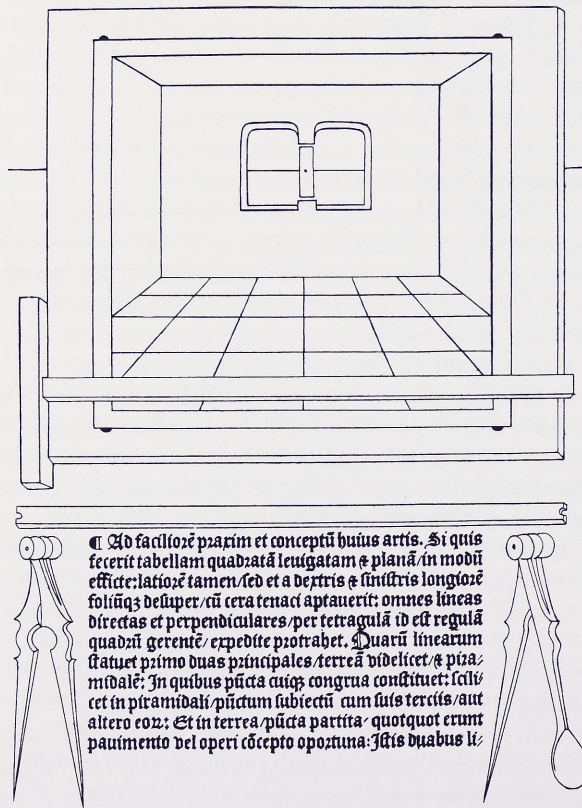 ¶ Ad faciliorē praxim et conceptū huius artis. Si quis
fecerit tabellam quadratā leuigatam ⁊ planā/in modū
efficte:latiorē tamen/sed et a dextris ⁊ sinistris longiorē
foliūqꝫ desuper/cū cera tenaci aptauerit: omnes lineas
directas et perpendiculares/per tetragulā id est regulā
quadrū gerentē/expedite protrahet. Quarū linearum
statuet primo duas principales/terreā videlicet/⁊ pira-
midalē: In quibus pūcta cuiqꝫ congrua constituet: scili-
cet in piramidali/pūctum subiectū cum suis terciis/aut
altero eoꝝ: Et in terrea/pūcta partita/quotquot erunt
pauimento vel operi cōcepto oportuna: Istis duabus li-